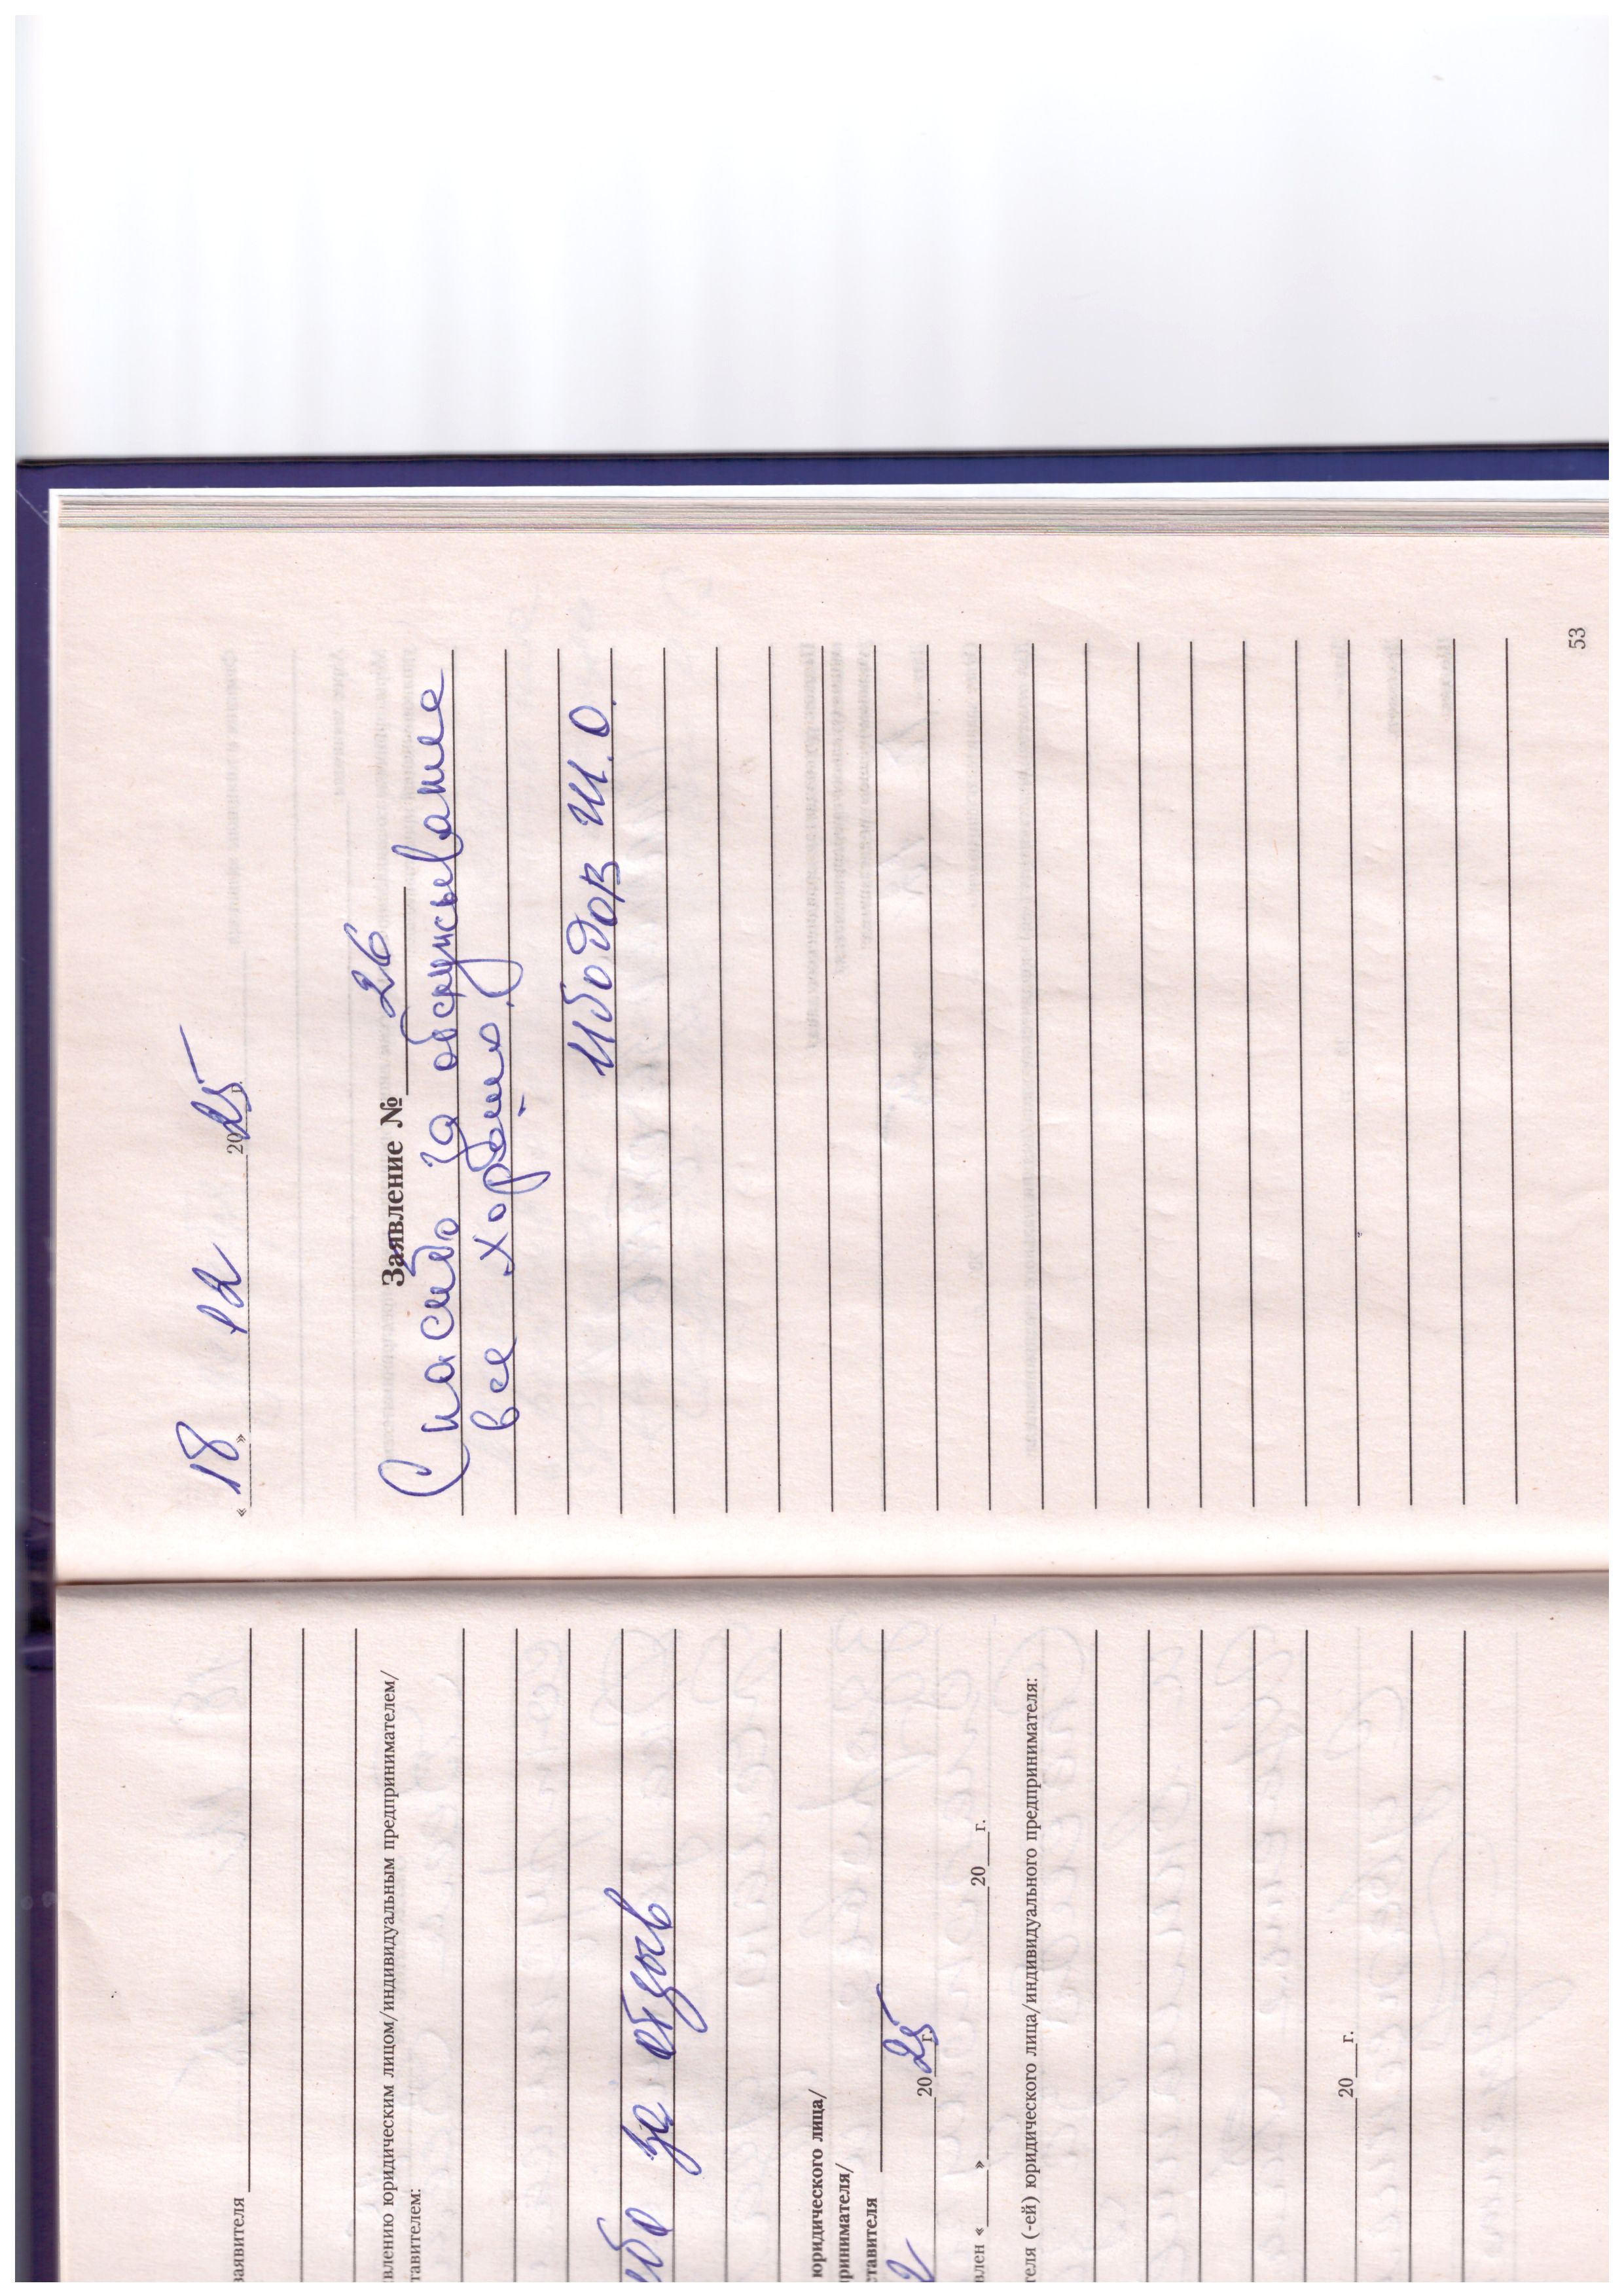 заявителя
влению юридическим лицом/индивидуальным предпринимателем/
тавителем:
ибо за отзыв
юридического лица/
ринимателя/
ставителя
2 2025 г.
влен «___»___20___г.
теля (-ей) юридического лица/индивидуального предпринимателя:
20___г.
«18» 12 2025 г.
Заявление № 26
Спасибо за обслуживание
все хорошо.
Ибодов Ш.О.
53